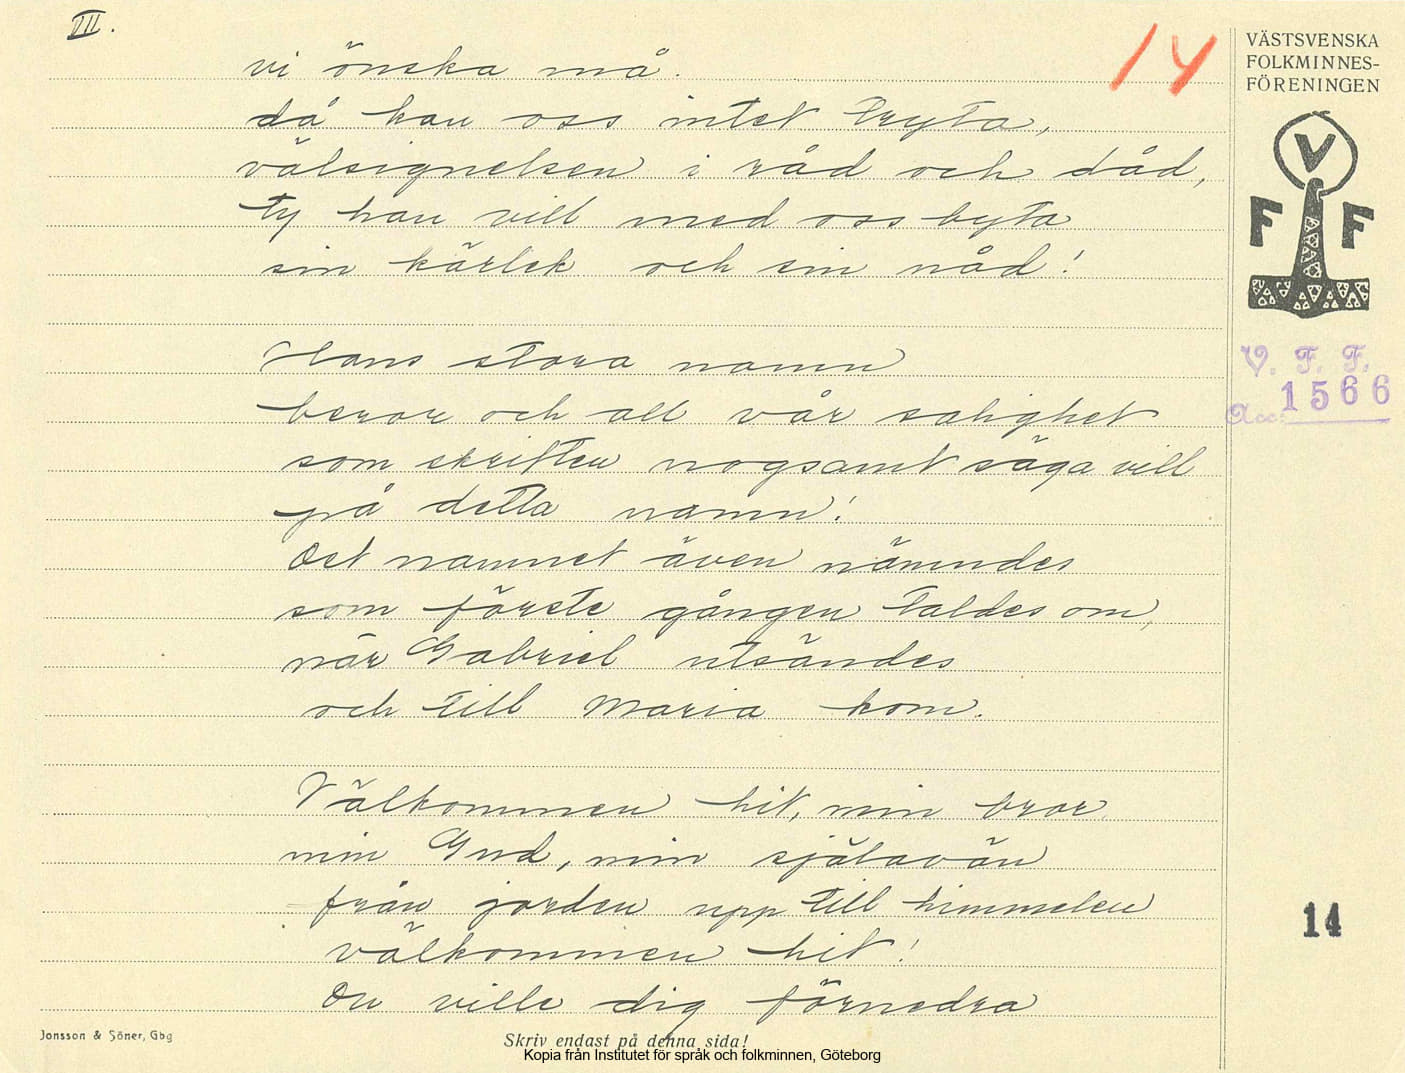 VII.
14
vi önska må.
då kan oss intet tryta,
välsignelsen i råd och dåd,
ty han vill med oss byta
sin kärlek och sin nåd!
Hans stora namn
beror och all vår salighet
som skriften nogsamt säga vill
på detta namn!
Det namnet även nämndes
som förste gången taldes om,
när Gabriel utsändes
och till Maria kom.
Välkommen hit, min bror,
min Gud, min själavän
från jorden upp till himmelen
välkommen hit!
Du ville dig förnedra
VÄSTSVENSKA
FOLKMINNES-
FÖRENINGEN
V
F F
V. F. F.
Acc: 1566
14
Jonsson & Söner, Gbg
Skriv endast på denna sida!
Kopia från Institutet för språk och folkminnen, Göteborg